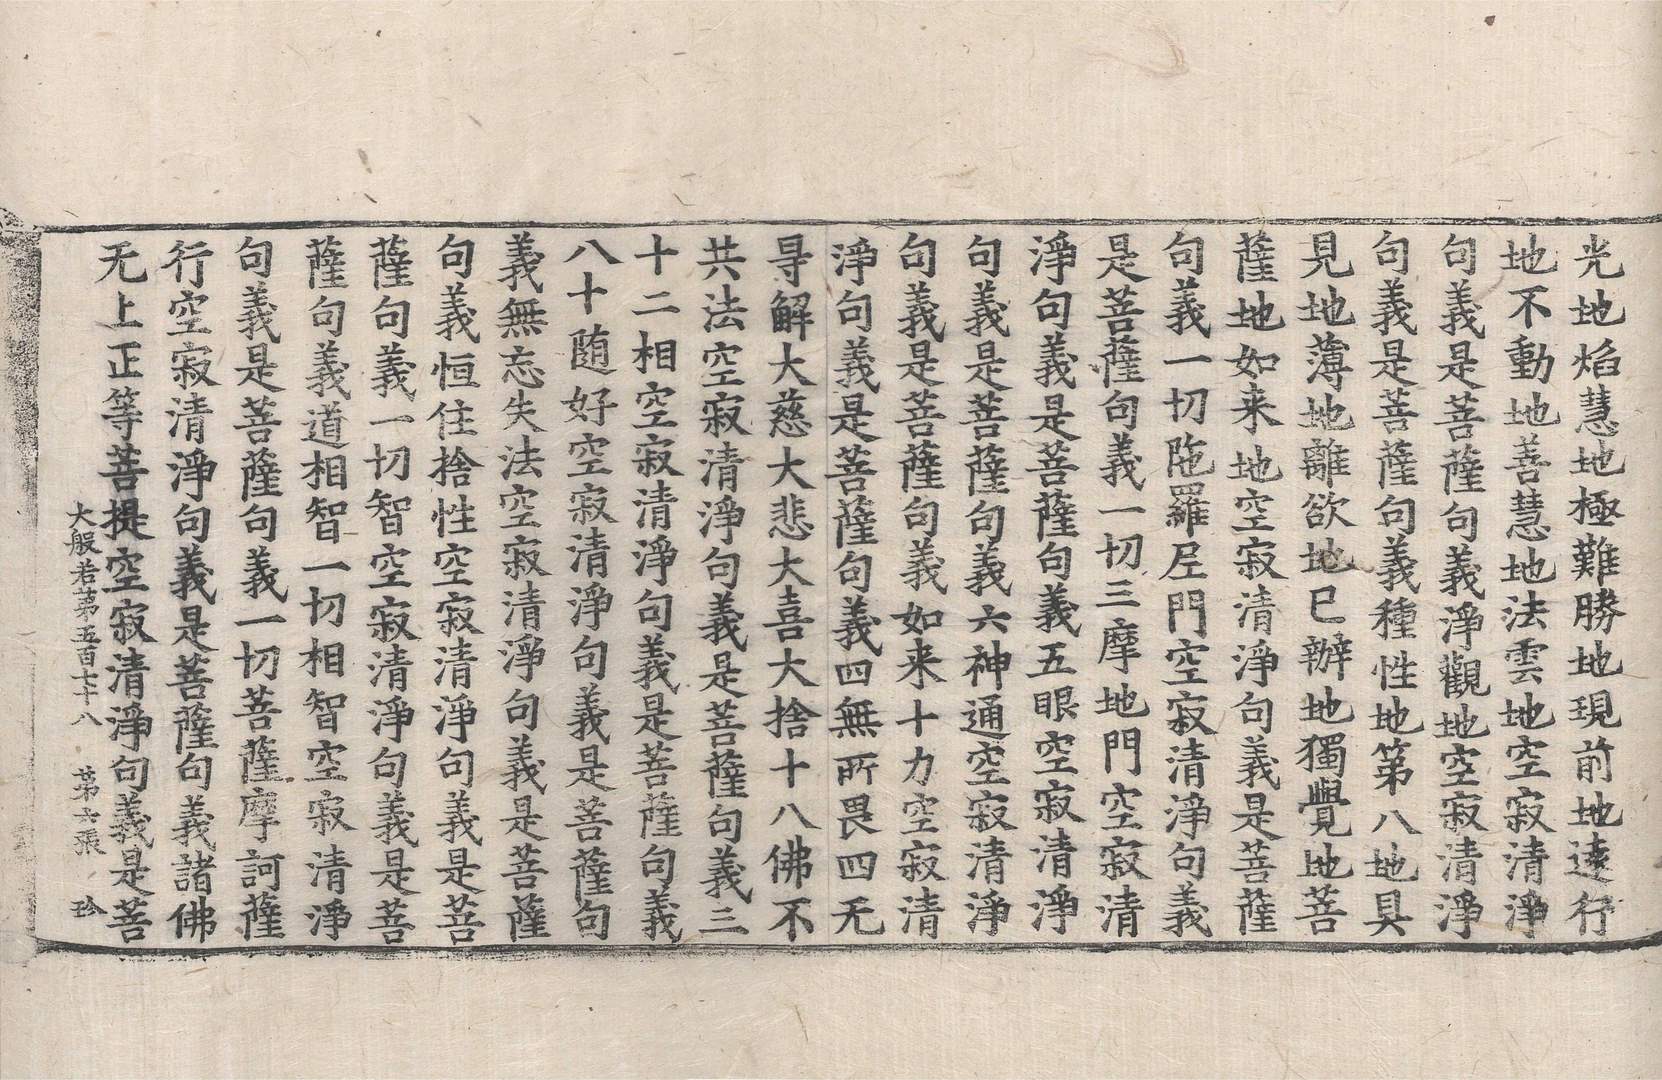 光地焰慧地極難勝地現前地遠行
地不動地善慧地法雲地空寂清淨
句義是菩薩句義淨觀地空寂清淨
句義是菩薩句義種性地第八地具
見地薄地離欲地已辦地獨覺地菩
薩地如来地空寂清淨句義是菩薩
句義一切陁羅𡰱門空寂清淨句義
是菩薩句義一切三摩地門空寂清
淨句義是菩薩句義五眼空寂清淨
句義是菩薩句義六神通空寂清淨
句義是菩薩句義如来十力空寂清
淨句義是菩薩句義四無所畏四无
㝵解大慈大悲大喜大捨十八佛不
共法空寂清淨句義是菩薩句義三
十二相空寂清淨句義是菩薩句義
八十随好空寂清淨句義是菩薩句
義無忘失法空寂清淨句義是菩薩
句義恒住捨性空寂清淨句義是菩
薩句義一切智空寂清淨句義是菩
薩句義道相智一切相智空寂清淨
句義是菩薩句義一切菩薩摩訶薩
行空寂清淨句義是菩薩句義諸佛
无上正等菩提空寂清淨句義是菩
大般若第五百七十八 第六張 珎